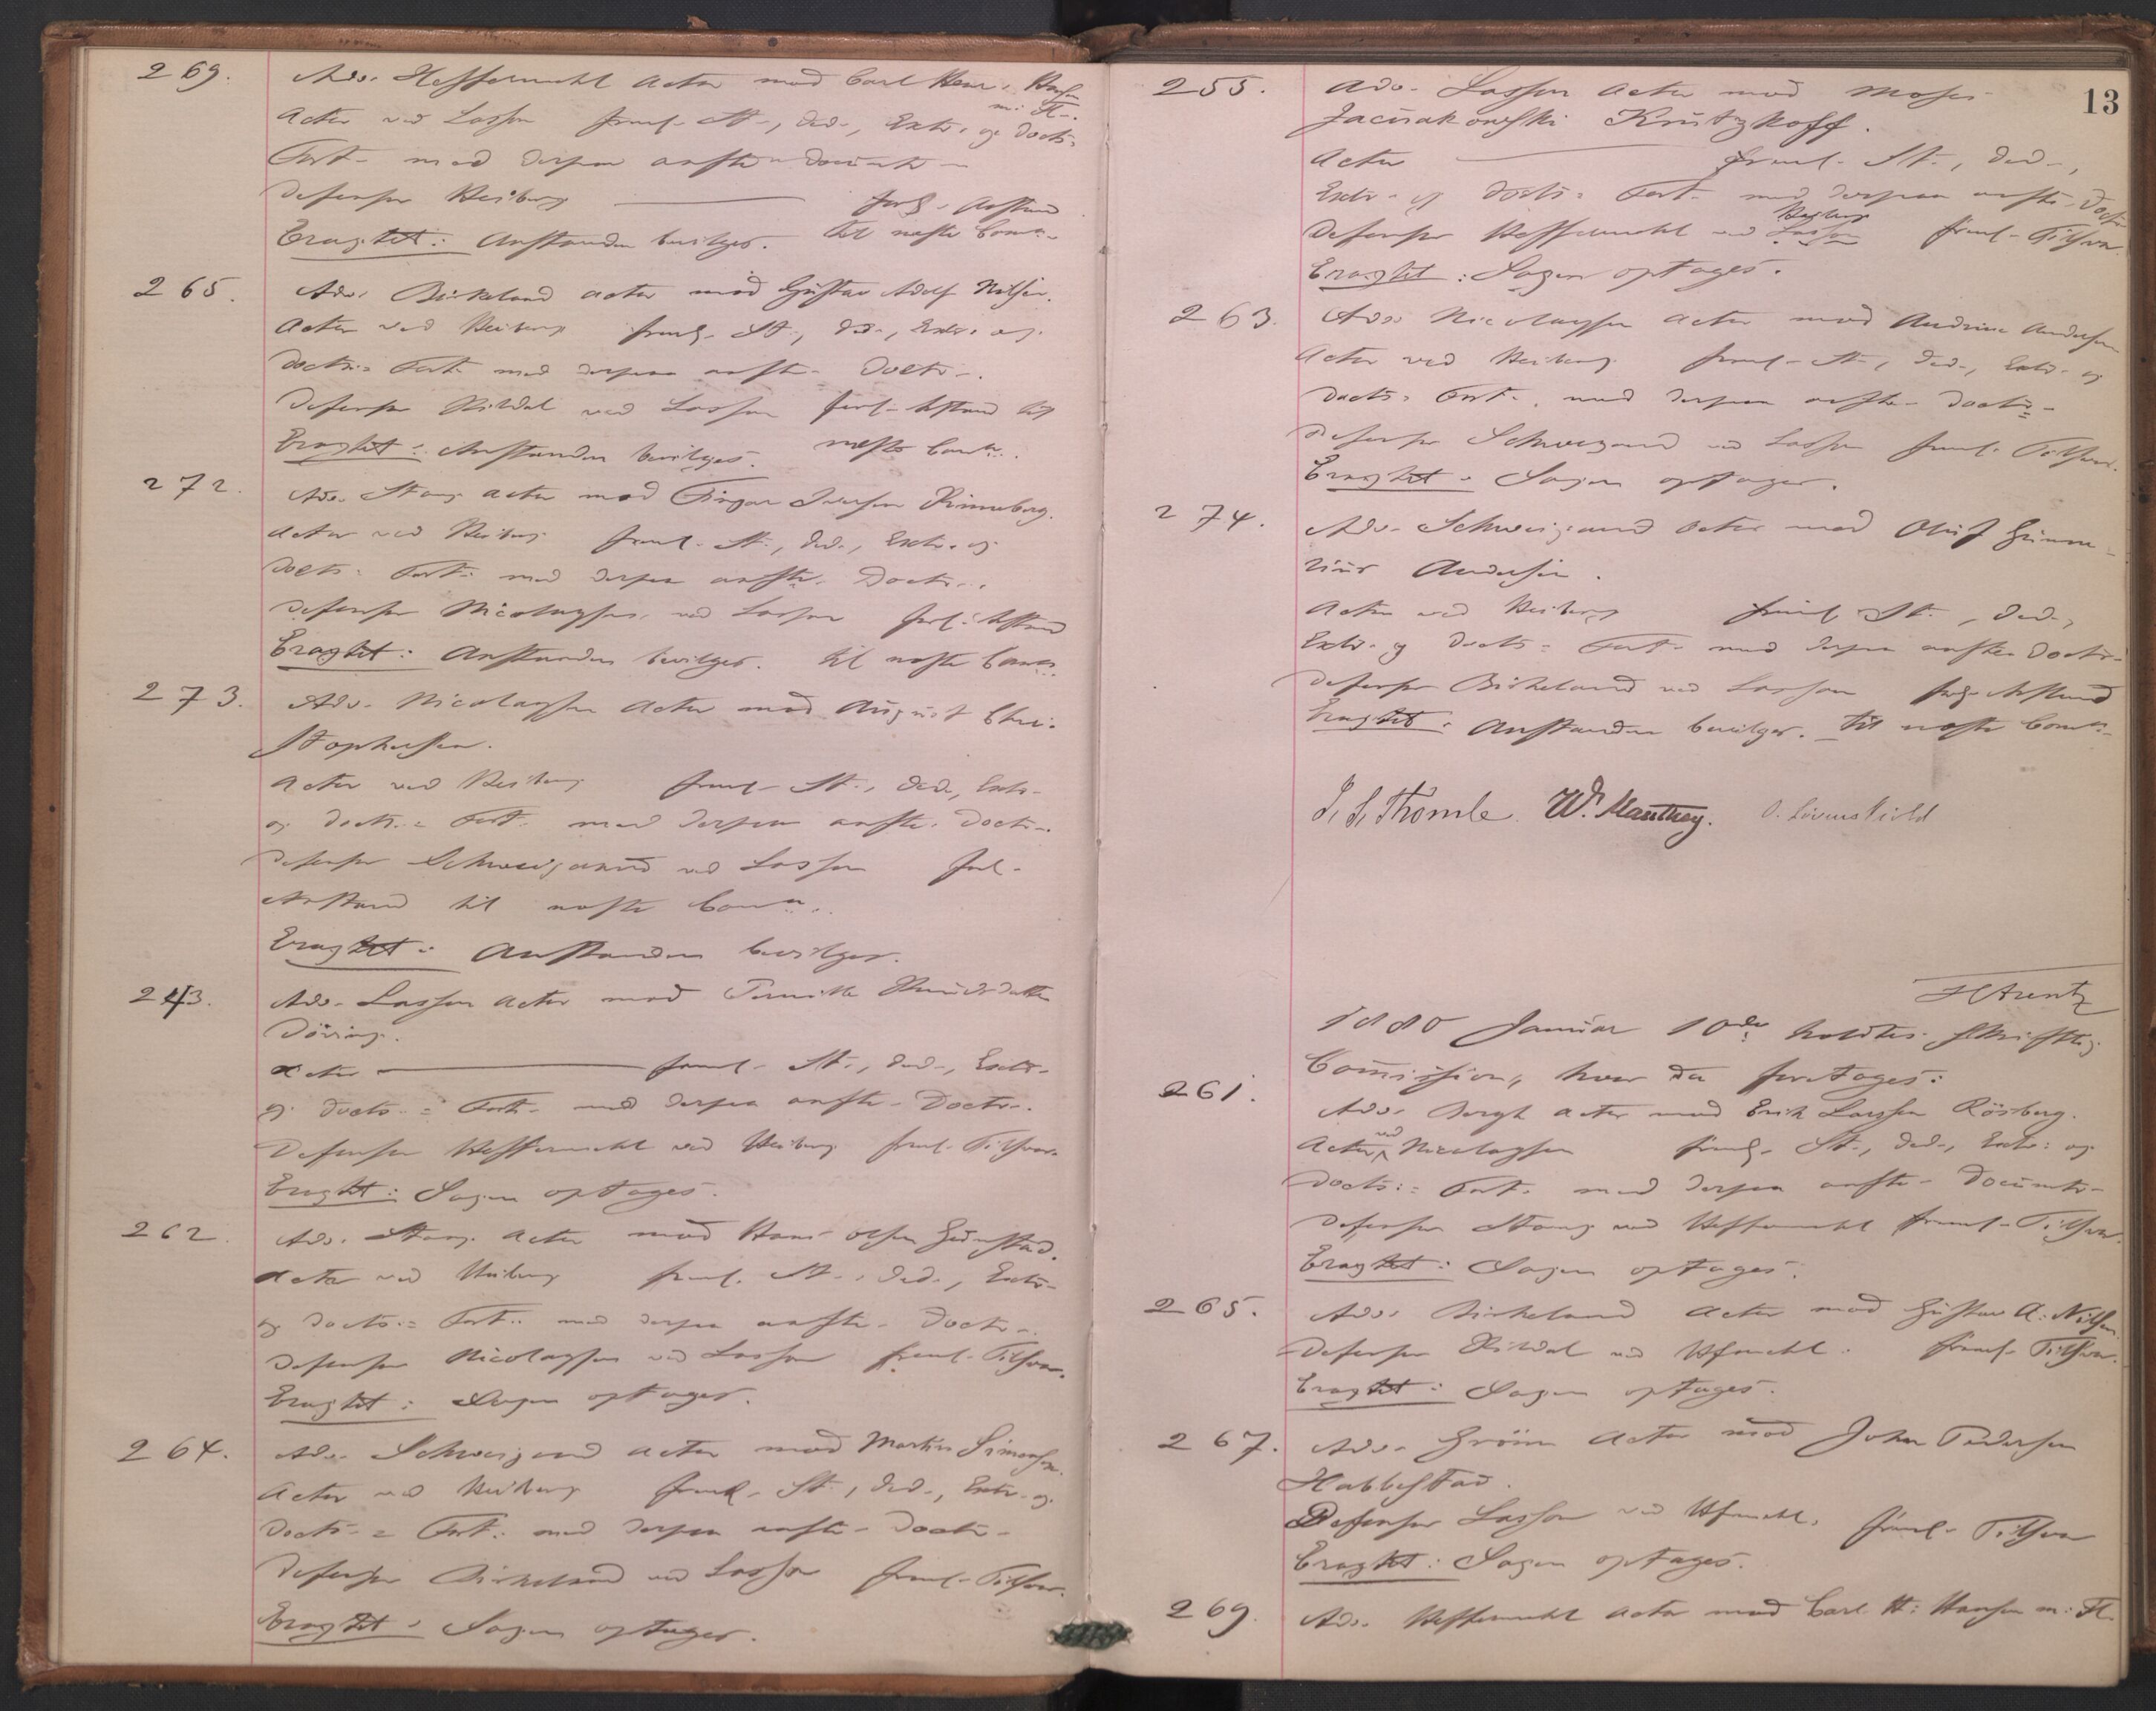 269. Adv. Heffermehl Actor mod Carl Henr. Hansen
m: Fl.
Actor ved Lasson freml. St., Ded., Extr. og Doctr.
Fort. med derpaa anførte Documenter
Defensor Heiberg forl. Anstand
Eragtet: Anstanden bevilges. til næste Comm.
265. Adv. Birkeland Actor mod Gustav Adolf Nilsen.
Actor ved Heiberg freml. St., Ded., Extr. og
Doctr. Fort. med derpaa anførte Doctr.
Defensor Rivdal ved Lasson forl. Anstand til
Eragtet: Anstanden bevilges. næste Comm.
272. Adv. Stang Actor mod Iversen Rinneberg.
Actor ved Heiberg freml. St., Ded., Extr. og
Doctr. Fort. med derpaa anførte Doctr.
Defensor Nicolaysen ved Lasson forl. Anstand
Eragtet: Anstanden bevilges. til næste Comm.
273. Adv. Nicolaysen Actor mod August Chri-
stophersen.
Actor ved Heiberg freml. St., Ded., Extr.
og Doctr. Fort. med derpaa anførte Doctr.
Defensor Schweigaard ved Lasson forl.
Anstand til næste Comm.
Eragtet: Anstanden bevilges.
243. Adv. Lasson Actor mod Pernille Knudsdatter
Döving.
Actor freml. St., Ded., Extr.
og Doctr. Fort. med derpaa anførte Doctr.
Defensor Heffermehl ved Heiberg freml. Tilsvar.
Eragtet: Sagen optages.
262. Adv. Stang Actor mod Hans Olsen
Actor ved Heiberg freml. St., Ded., Extr.
og Doctr. Fort. med derpaa anførte Doctr.
Defensor Nicolaysen ved Lasson freml. Tilsvar.
Eragtet: Sagen optages.
264. Adv. Schweigaard Actor mod Martin Simonsen.
Actor ved Heiberg freml. St., Ded., Extr. og
Doctr. Fort. med derpaa anførte Doctr.
Defensor Birkeland ved Lasson freml. Tilsvar.
Eragtet: Sagen optages.
13
255. Adv. Lasson Actor mod Moses
Jacusakowski Krutzkoff.
Actor freml. St., Ded.,
Extr. og Doctr. Fort. med derpaa anførte Doctr.
Defensor Heffermehl ved Heiberg Lasson freml. Tilsvar.
Eragtet: Sagen optages.
263. Adv. Nicolaysen Actor mod Andrine Andersen
Actor ved Heiberg freml. St., Ded., Extr. og
Doctr. Fort. med derpaa anførte Doctr.
Defensor Schweigaard ved Lasson freml. Tilsvar.
Eragtet: Sagen optages.
274. Adv. Schweigaard Actor mod Oluf Gunne-
rius Andersen.
Actor ved Heiberg freml. St., Ded.,
Extr. og Doctr. Fort. med derpaa anførte Doctr.
Defensor Birkeland ved Lasson forl. Anstand
Eragtet: Anstanden bevilges. til næste Comm.
J. S. Thomle. W. Manthey. O. Lövenskiold
H Arentz
1880 Januar 10de holdtes skriftlig
Commission, hvor da foretages:
261. Adv. Bergh Actor mod Erik Larssen Rösberg.
Actor ved Nicolaysen freml. St., Ded., Extr. og
Doctr. Fort. med derpaa anførte Documenter
Defensor Stang ved Heffermehl freml. Tilsvar.
Eragtet: Sagen optages.
265. Adv. Birkeland Actor mod Gustav A. Nilsen.
Defensor Rivdal ved Hfmehl. freml. Tilsvar.
Eragtet: Sagen optages.
267. Adv. Grönn Actor mod John Pedersen
Habbestad.
Defensor Lasson ved Hfmehl. freml. Tilsvar
Eragtet: Sagen optages.
269. Adv. Heffermehl Actor mod Carl H. Hansen m: Fl.